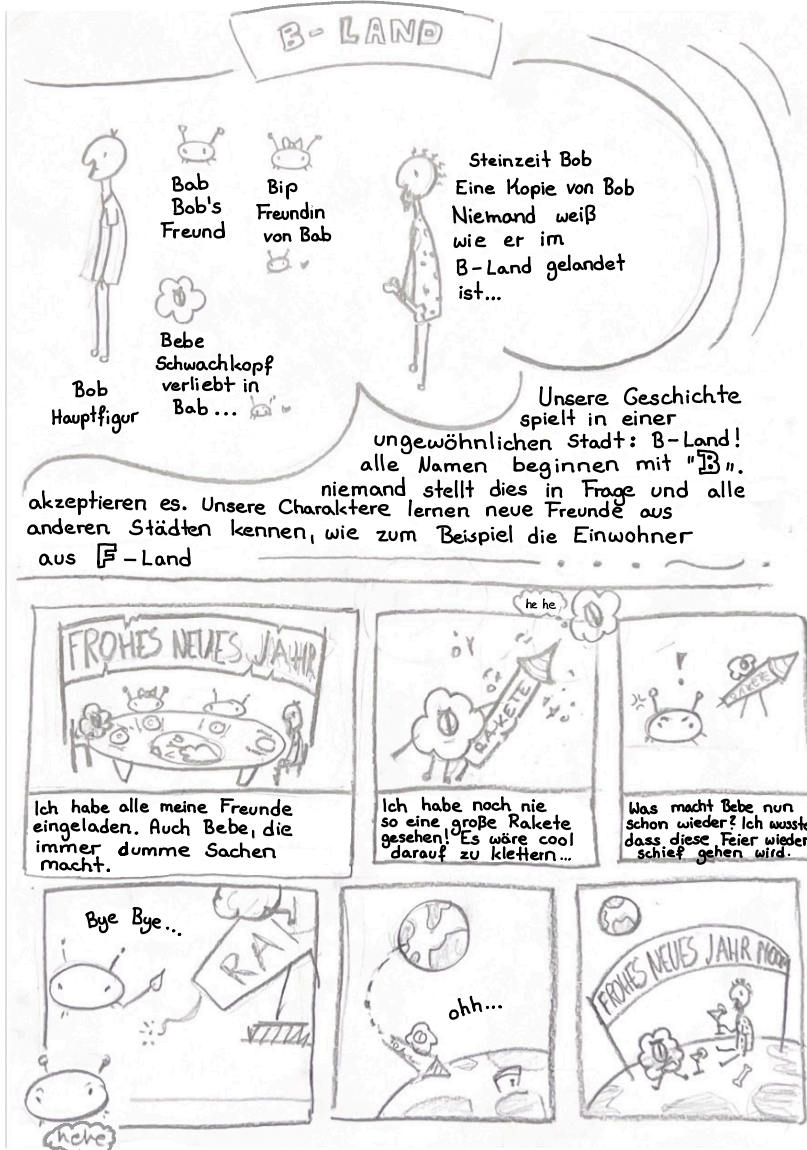 B-LAND
Bob
Hauptfigur
Bab
Bob's
Freund
Bip
Freundin
von Bab
Bebe
Schwachkopf
verliebt in
Bab...
Steinzeit Bob
Eine Kopie von Bob
Niemand weiß
wie er im
B-Land gelandet
ist...
Unsere Geschichte
spielt in einer
ungewöhnlichen Stadt: B-Land!
alle Namen beginnen mit "B".
niemand stellt dies in Frage und alle
akzeptieren es. Unsere Charaktere lernen neue Freunde aus
anderen Städten kennen, wie zum Beispiel die Einwohner
aus F-Land
FROHES NEUES JAHR
Ich habe alle meine Freunde
eingeladen. Auch Bebe, die
immer dumme Sachen
macht.
he he
RAKETE
Ich habe noch nie
so eine große Rakete
gesehen! Es wäre cool
darauf zu klettern...
!
RAKETE
Was macht Bebe nun
schon wieder? Ich wusste
dass diese Feier wieder
schief gehen wird.
Bye Bye...
RA
hehe
ohh...
FROHES NEUES JAHR